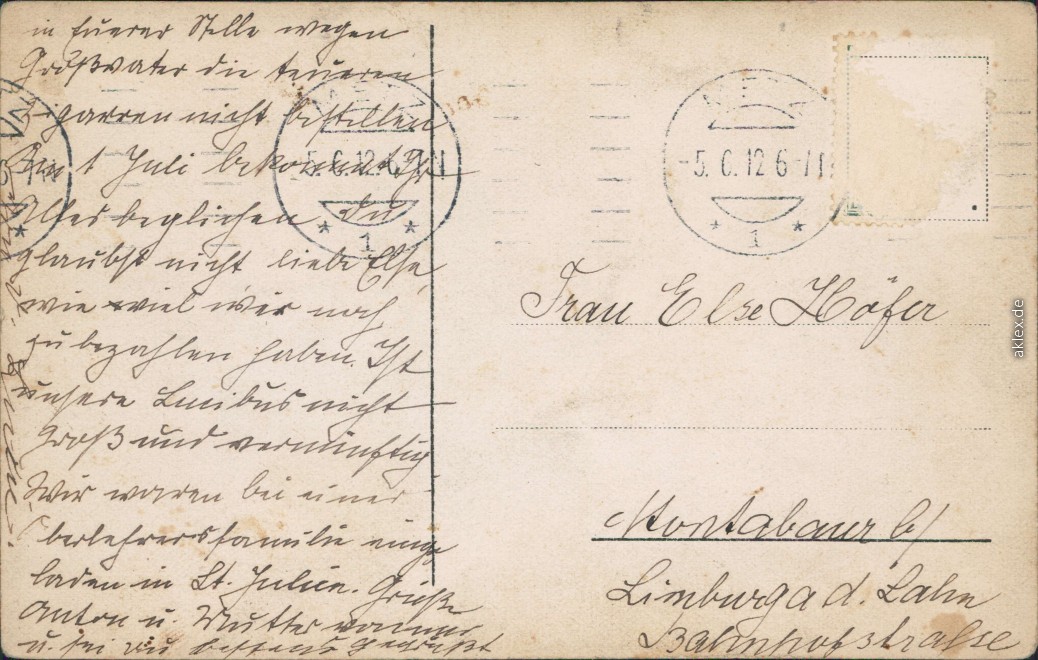 in Euerer Stelle wegen
Großvater die teueren
Zigarren nicht bestellen
Am 1 Juli bekommt Ihr
Alles beglichen. Du
glaubst nicht liebe Else,
wie viel wir noch
zu bezahlen haben. Ist
unsere nicht
groß und vernünftig
Wir waren bei einer
Oberlehrersfamilie einge
laden in St. Julien. Grüße
Anton u. Mutter
u. sei Du bestens gegrüßt
METZ
-5.6.12 6-7N
1
METZ
-5.6.12 6-7N
1
Frau Else Höfer
Montabaur b/
Limburg a d. Lahn
Bahnhofstraße
aklex.de